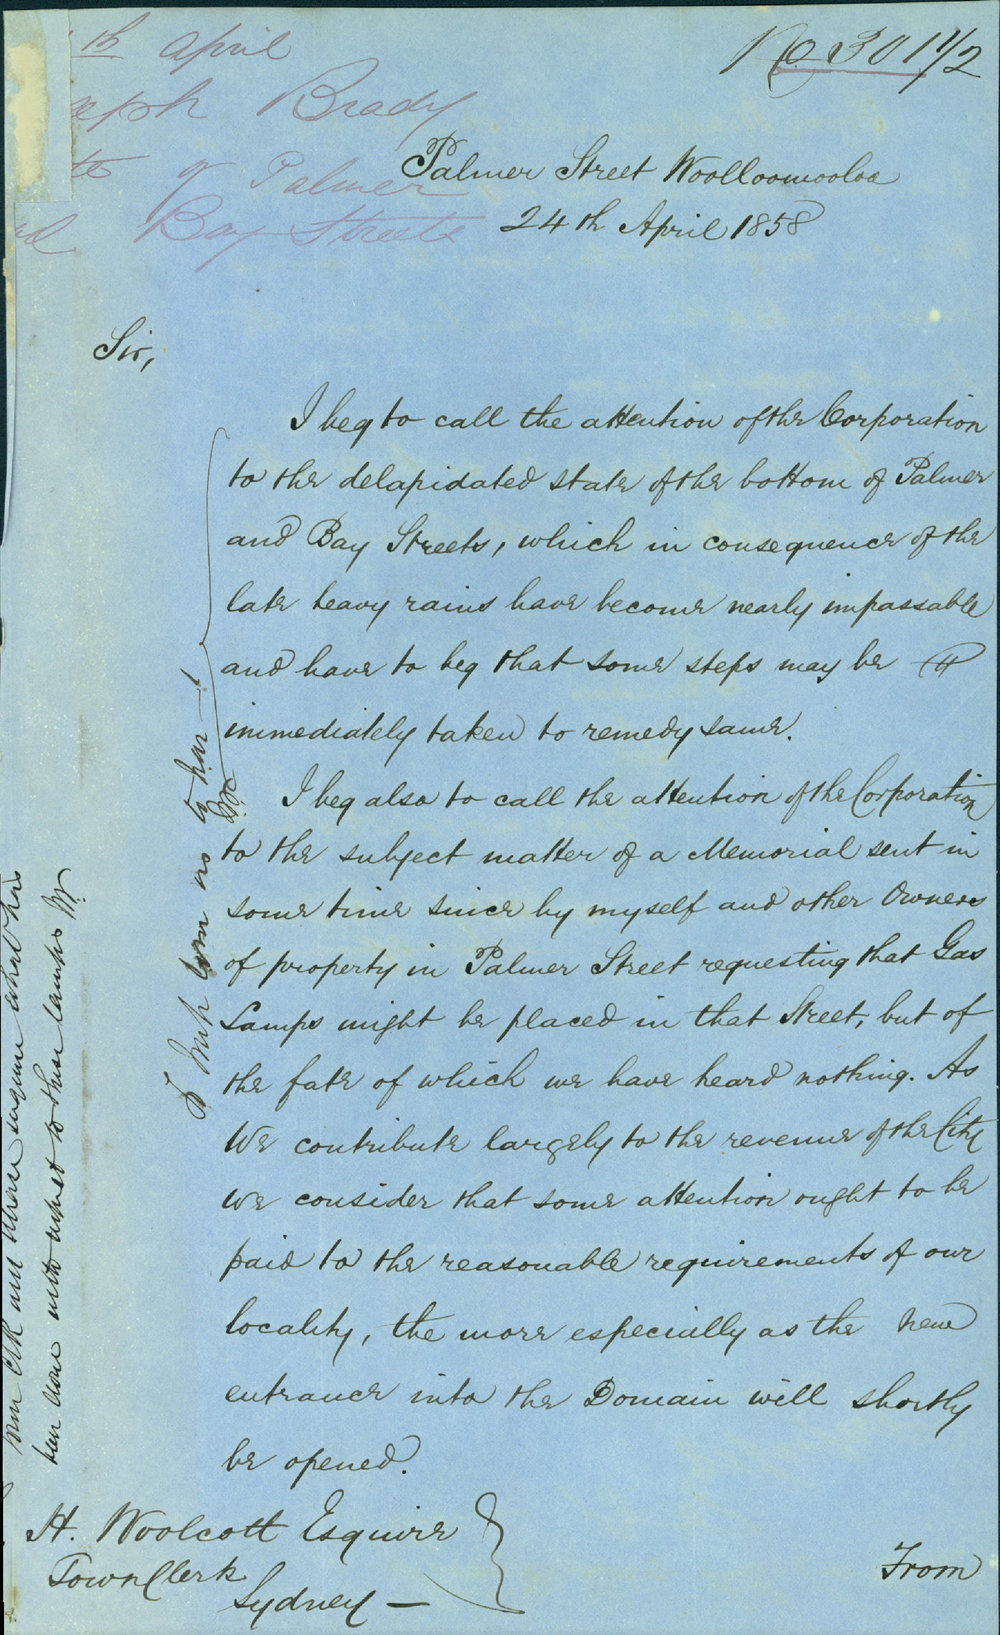 th April
eph Brady
te of Palmer
d Bay Streets
No 301 1/2
Palmer Street Woolloomooloo
24th April 1858
Sir,
I beg to call the attention of the Corporation
to the delapidated state of the bottom of Palmer
and Bay Streets, which in consequence of the
late heavy rains have become nearly impassable
and have to beg that some steps may be
immediately taken to remedy same.
I beg also to call the attention of the Corporation
to the subject matter of a Memorial sent in
some time since by myself and other Owners
of property in Palmer Street requesting that Gas
Lamps might be placed in that Street, but of
the fate of which we have heard nothing. As
We contribute largely to the revenue of the City
we consider that some attention ought to be
paid to the reasonable requirements of our
locality, the more especially as the new
entrance into the Domain will shortly
be opened.
H. Woolcott Esquire
Town Clerk
Sydney —
From
Clk will please inquire what has
been done with respect to these lamps